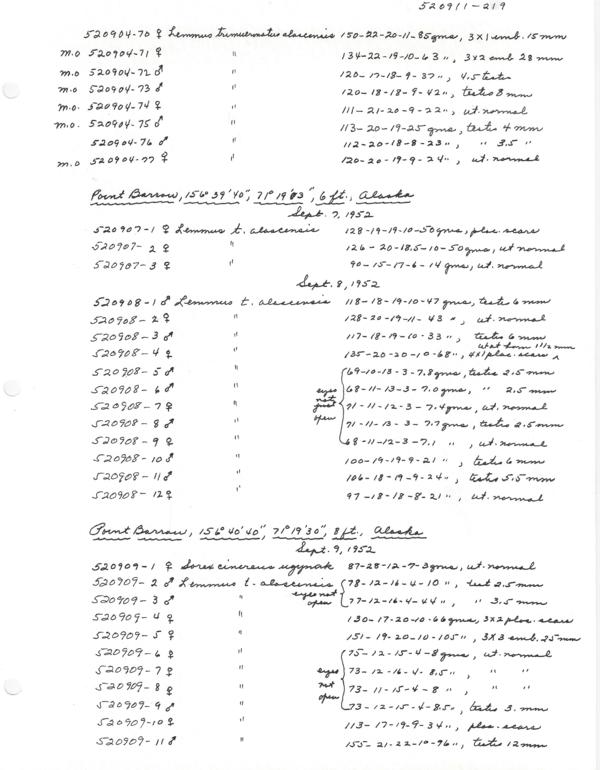 520911-219
520904-70 ♀ Lemmus trimucronatus alascensis 150-22-20-11-85gms, 3X1 emb. 15 mm
m.o 520904-71 ♀ " 134-22-19-10-63 ", 3x2 emb 28 mm
m.o 520904-72 ♂ " 120-17-18-9-37", 4.5 testes
m.o. 520904-73 ♂ " 120-18-18-9-42", testes 8 mm
m.o. 520904-74 ♀ " 111-21-20-9-22", ut. normal
m.o. 520904-75 ♂ " 113-20-19-25 gms, testes 4 mm
520904-76 ♂ " 112-20-18-8-23", " 3.5 "
m.o 520904-77 ♀ " 120-20-19-9-24", ut. normal
Point Barrow, 156° 39' 40", 71° 19' 03", 6 ft., Alaska
Sept. 7, 1952
520907-1 ♀ Lemmus t. alascensis 128-19-19-10-50gms, plac. scars
520907-2 ♀ " 126-20-18.5-10-50gms, ut normal
520907-3 ♀ " 90-15-17-6-14 gms, ut. normal
Sept. 8, 1952
520908-1 ♂ Lemmus t. alascensis 118-18-19-10-47 gms, testes 6 mm
520908-2 ♀ " 128-20-19-11-43 ", ut. normal
520908-3 ♂ " 117-18-19-10-33 ", testes 6 mm
520908-4 ♀ " 135-20-20-10-68", 4x1 plac. scars ^ ut at horn 12 mm
520908-5 ♂ " 69-10-13-3-7.8gms, testes 2.5 mm
520908-6 ♂ " eyes not just open 68-11-13-3-7.0 gms, " 2.5 mm
520908-7 ♀ " 71-11-12-3-7.4gms, ut. normal
520908-8 ♂ " 71-11-13-3-7.7 gms, testes 2.5 mm
520908-9 ♀ " 68-11-12-3-7.1 ", ut. normal
520908-10 ♂ " 100-19-19-9-21 ", testes 6 mm
520908-11 ♂ " 106-18-19-9-24", testes 5.5 mm
520908-12 ♀ " 97-18-18-8-21", ut. normal
Point Barrow, 156° 40' 40", 71° 19' 30", 8 ft., Alaska
Sept. 9, 1952
520909-1 ♀ Sorex cinereus ugyunak 87-28-12-7-3gms, ut. normal
520909-2 ♂ Lemmus t. alascensis 78-12-16-4-10 ", test 2.5 mm
520909-3 ♂ " eyes not open 77-12-16-4-44 ", " 3.5 mm
520909-4 ♀ " 130-17-20-10-66gms, 3X2 plac. scars
520909-5 ♀ " 151-19-20-10-105", 3X3 emb. 25 mm
520909-6 ♀ " 75-12-15-4-8gms, ut. normal
520909-7 ♀ " eyes not open 73-12-16-4-8.5", " "
520909-8 ♀ " 73-11-15-4-8 ", " "
520909-9 ♂ " 73-12-15-4-8.5", testes 3. mm
520909-10 ♀ " 113-17-19-9-34", plac. scars
520909-11 ♂ " 155-21-22-10-96", testes 12 mm